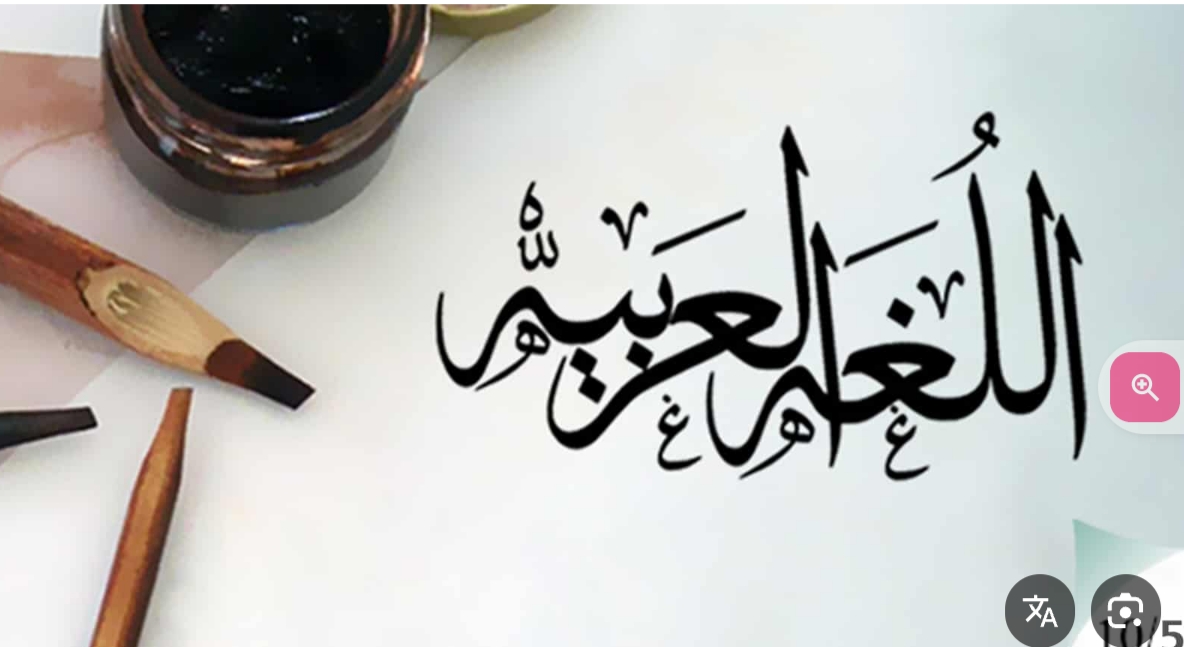 اللُغه العربيّه
10/5